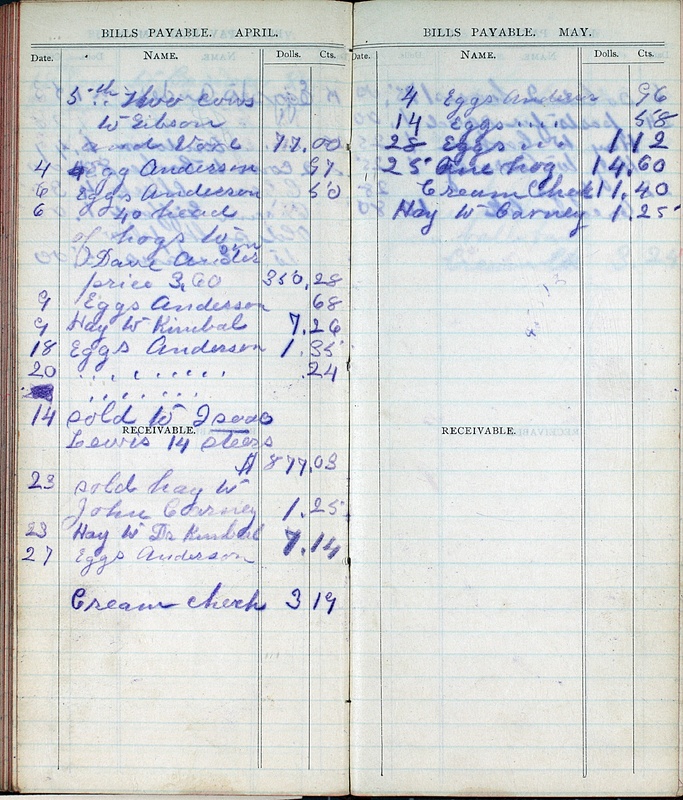 BILLS PAYABLE. APRIL.
Date. NAME. Dolls. Cts.
5th Two cows
to Gibson
77.00
4 Egg Anderson 97
6 Eggs Anderson 50
6 40 head
of hogs to
Dave
price 3,60 350,28
9 Eggs Anderson 68
9 Hay to Kimbal 7.26
18 Eggs Anderson 1.35
20 " " " " " " .24
" " " " " "
14 sold to Isaac
RECEIVABLE.
Lewis 14 steers
$ 877,03
23 sold hay to
John Carney 1.25
23 Hay to Dr Kimbal 7.14
27 Eggs Anderson
Cream check 3 19
BILLS PAYABLE. MAY.
Date. NAME. Dolls. Cts.
4 Eggs Anderson 96
14 Eggs " " 58
28 Eggs " " 1 12
25 One hog 14.60
Cream Check 11.40
Hay to Carney 1.25
RECEIVABLE.